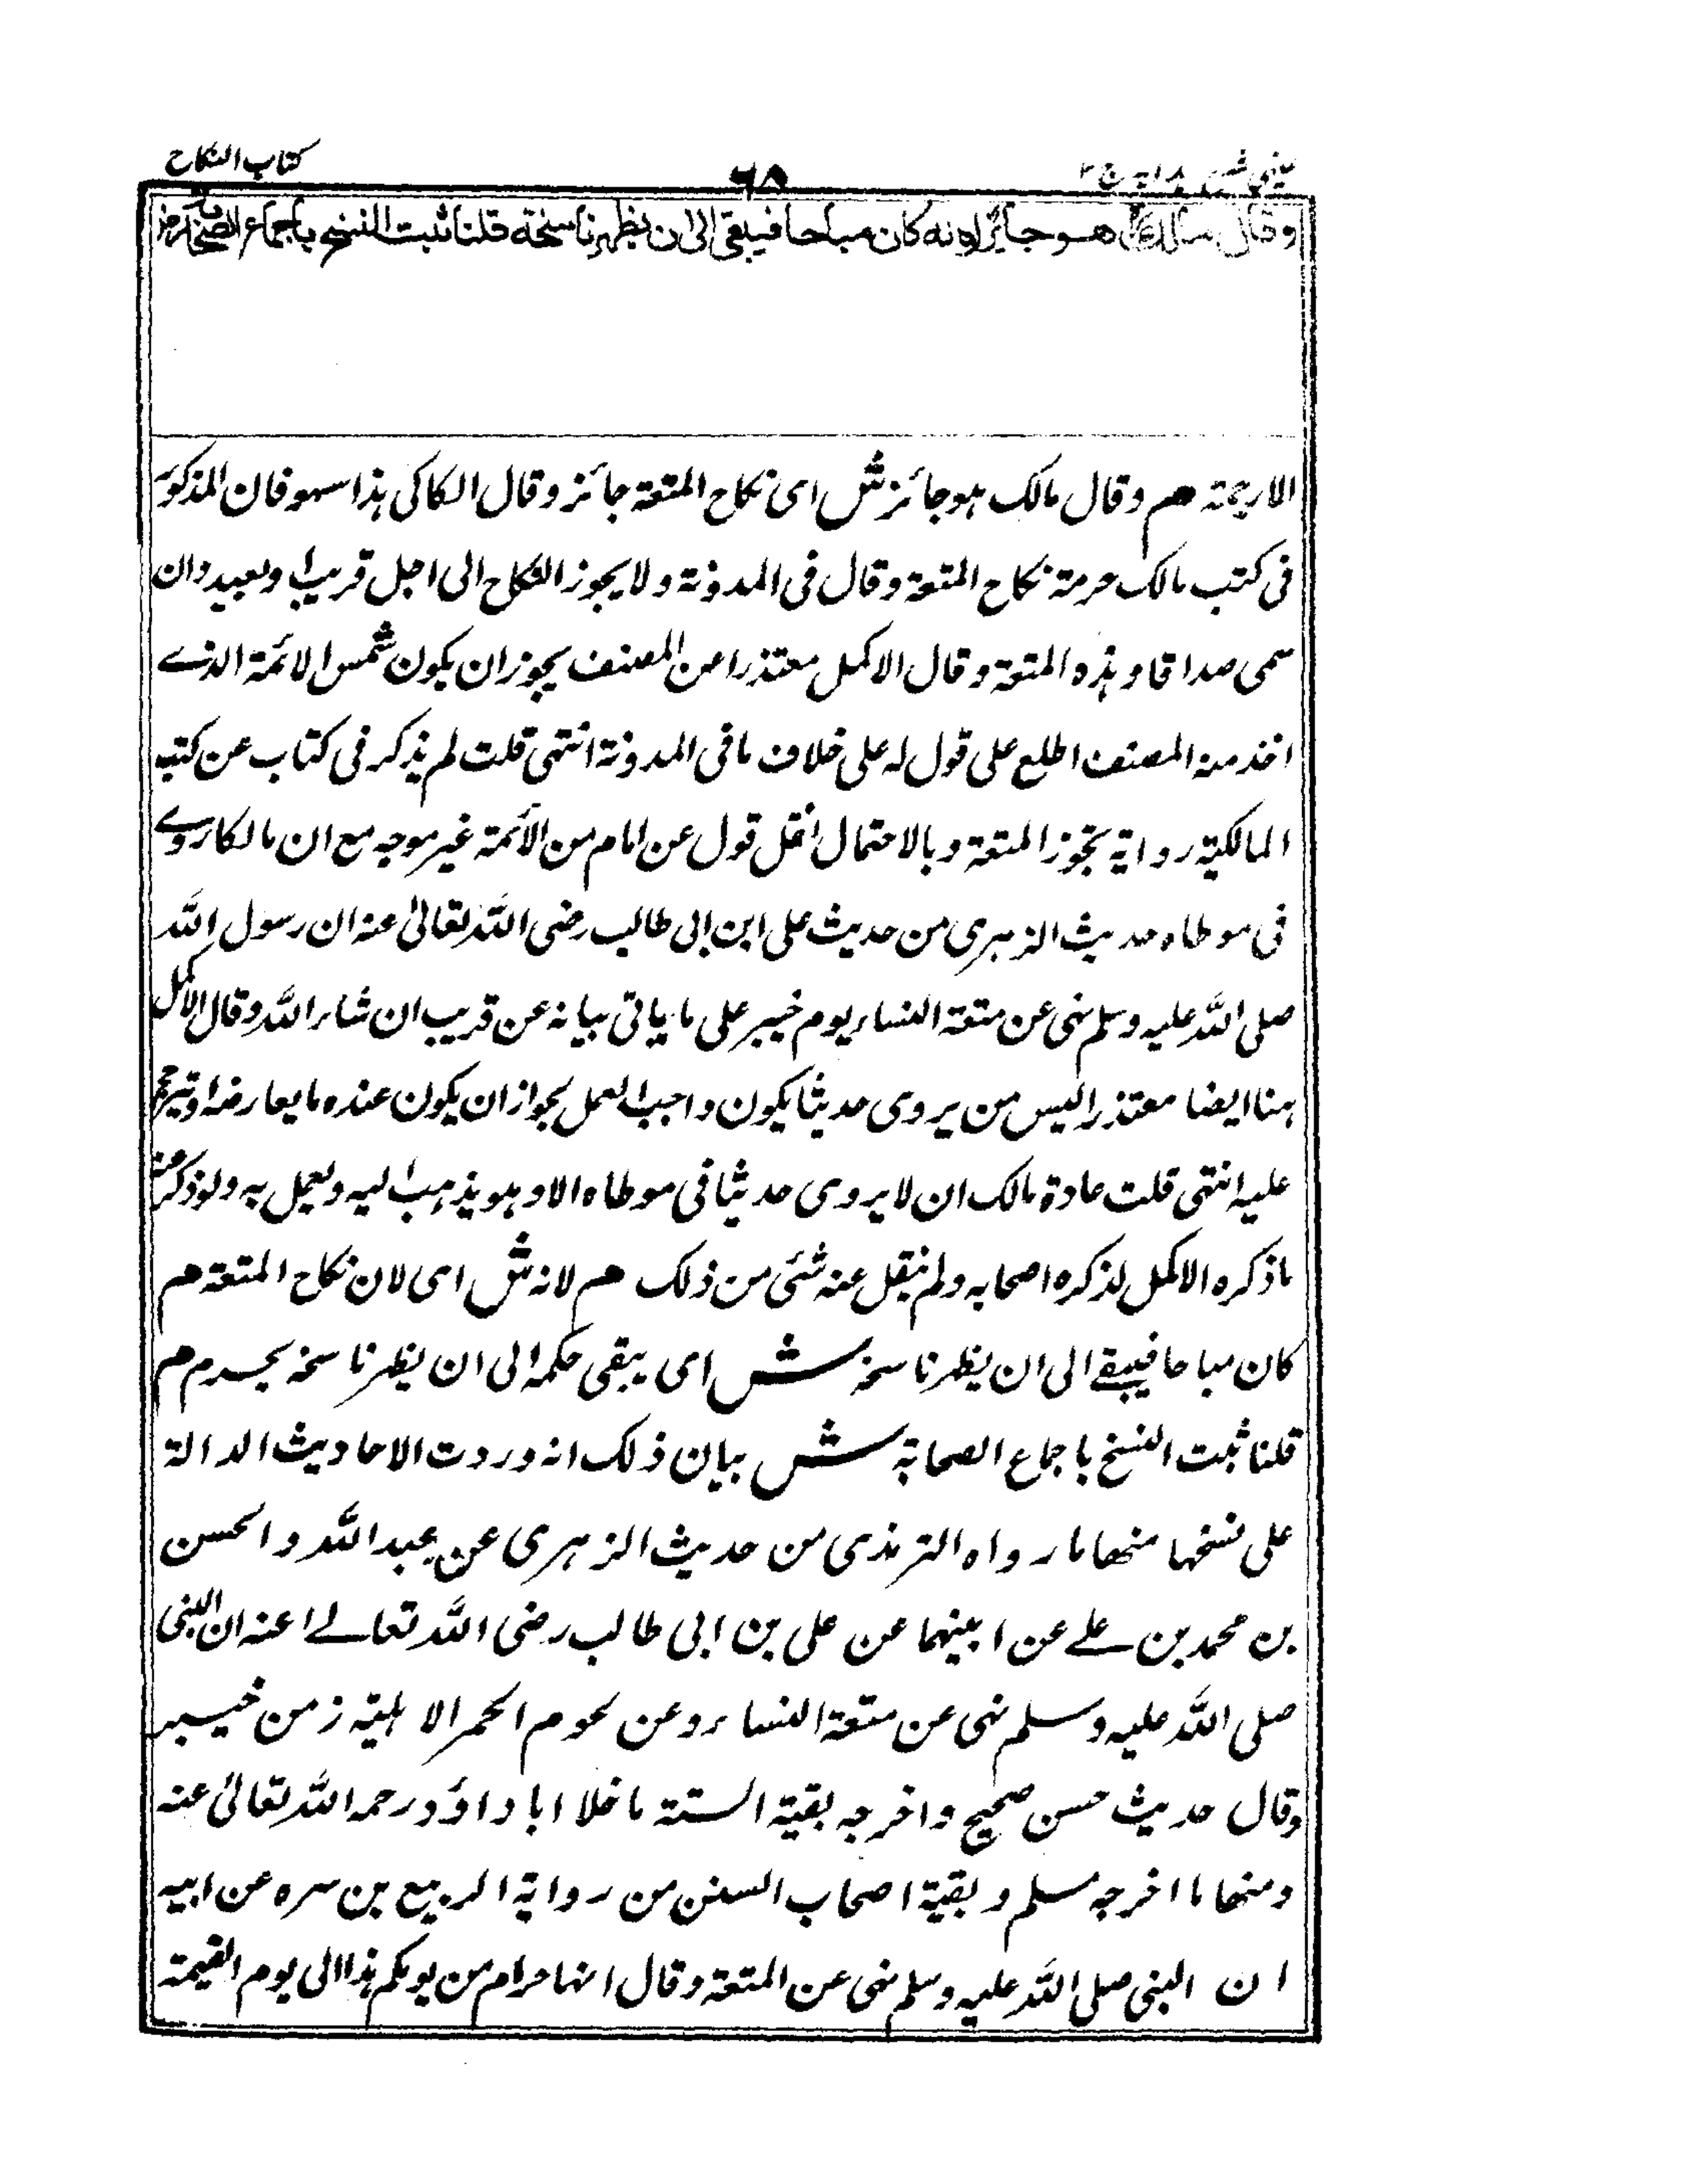 عینی شرح ہدایہ ج ۲
۶۸
کتاب النکاح
وقال مالك هو جائز لانه كان مباحا فيبقى الى ان يظهر ناسخه قلنا ثبت النسخ باجماع الصحابة رض
الاربعة هم وقال مالک ہو جائز ش ای نکاح المتعة جائز وقال الکاکی ہذا سہو فان المذکور
فی کتب مالک حرمة نکاح المتعة وقال فی المدونة ولا یجوز النکاح الی اجل قریب او بعید وان
سمی صداقا وہذہ المتعة وقال الاکمل معتذرا عن المصنف یجوز ان یکون شمس الائمة الذے
اخذ منه المصنف اطلع علی قول له علی خلاف ما فی المدونة انتہی قلت لم یذکر فی کتاب عن کتب
المالکیة روایة بتجوز المتعة وبالاحتمال نقل قول عن امام من الائمة غیر موجه مع ان مالکا روے
فی موطاہ حدیث الزہری من حدیث علی ابن ابی طالب رضی اللہ تعالیٰ عنه ان رسول اللہ
صلی اللہ علیه وسلم نہی عن متعة النساء یوم خیبر علی ما یاتی بیانه عن قریب ان شاء اللہ وقال الاکمل
ہنا ایضا معتذرا لیس من یروی حدیثا یکون واجب العمل لجواز ان یکون عندہ ما یعارضه او ترجح
علیه انتہی قلت عادة مالک ان لا یروی حدیثا فی موطاہ الا وہو یذہب الیه ویعمل به ولو ذکر عنه
ما ذکرہ الاکمل لذکرہ اصحابه ولم ینقل عنه شئی من ذلک هم لانه ش ای لان نکاح المتعة هم
کان مباحا فیبقے الی ان یظہر ناسخه ش ای یبقی حکمه الی ان یظہر ناسخه یحرم هم
قلنا ثبت النسخ باجماع الصحابة ش بیان ذلک انه وردت الاحادیث الدالة
علی نسخہا منها ما رواہ الترمذی من حدیث الزہری عن عبد اللہ والحسن
بن محمد بن علے عن ابیہما عن علی بن ابی طالب رضی اللہ تعالے عنه ان النبی
صلی اللہ علیه وسلم نہی عن متعة النساء وعن لحوم الحمر الاہلیة زمن خیبر
وقال حدیث حسن صحیح واخرجه بقیة الستة ما خلا ابا داؤد رحمه اللہ تعالیٰ عنه
ومنها ما اخرجه مسلم وبقیة اصحاب السنن من روایة الربیع بن سرہ عن ابیه
ان النبی صلی اللہ علیه وسلم نہی عن المتعة وقال انہا حرام من یومکم ہذا الی یوم القیمة